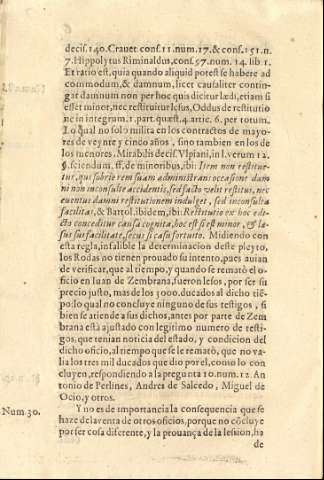 decis. 140. Crauet cons. 11. num. 17. & cons. 151. n.
7. Hippolytus Riminaldus, cons. 57. num. 14. lib. 1.
Et ratio est, quia quando aliquid potest se habere ad
commodum, & damnum, licet causaliter contin-
gat damnum non per hoc quis dicitur lædi, etiam si
esset minor, nec restituitur lesus, Oddus de restitutio
ne in integrum. 1. part. quæst. 4. artic. 6. per totum.
Lo qual no solo milita en los contractos de mayo-
res de veynte y cinco años, sino tambien en los de
los menores. Mirabilis decis. Vlpiani, in l. verum 12.
§. sciendum. ff. de minoribus, ibi: Item non restitue-
tur, qui sobrie rem suam administrans occasione dam
ni non inconsulte accidentis, sed facto velit restitui, nec
euentus damni restitutionem indulget, sed inconsulta
facilitas, & Bartol. ibidem, ibi: Restitutio ex hoc edi-
cto conceditur causa cognita, hoc est si est minor, & læ-
sus sua facilitate, secus si casu fortuito. Midiendo con
esta regla, infalible la determinacion deste pleyto,
los Rodas no tienen prouado su intento, pues auian
de verificar, que al tiempo, y quando se remató el o-
ficio en Iuan de Zembrana, fueron lesos, por ser su
precio justo, mas de dos y 000. ducados al dicho tiē-
po: lo qual no concluye ninguno de sus testigos, si
bien se atiende a sus dichos, antes por parte de Zem
brana està ajustado con legitimo numero de testi-
gos, que tenian noticia del estado, y condicion del
dicho oficio, al tiempo que se le rematò, que no va-
lia los tres mil ducados que dio por el, como lo con
cluyen, respondiendo a la pregunta 10. num. 12. An
tonio de Perlines, Andres de Salcedo, Miguel de
Ocio, y otros.
Num. 30. Y no es de importancia la consequencia que se
haze de la venta de otros oficios, porque no cōcluye
por ser cosa diferente, y la prouança de la lesion, ha
de